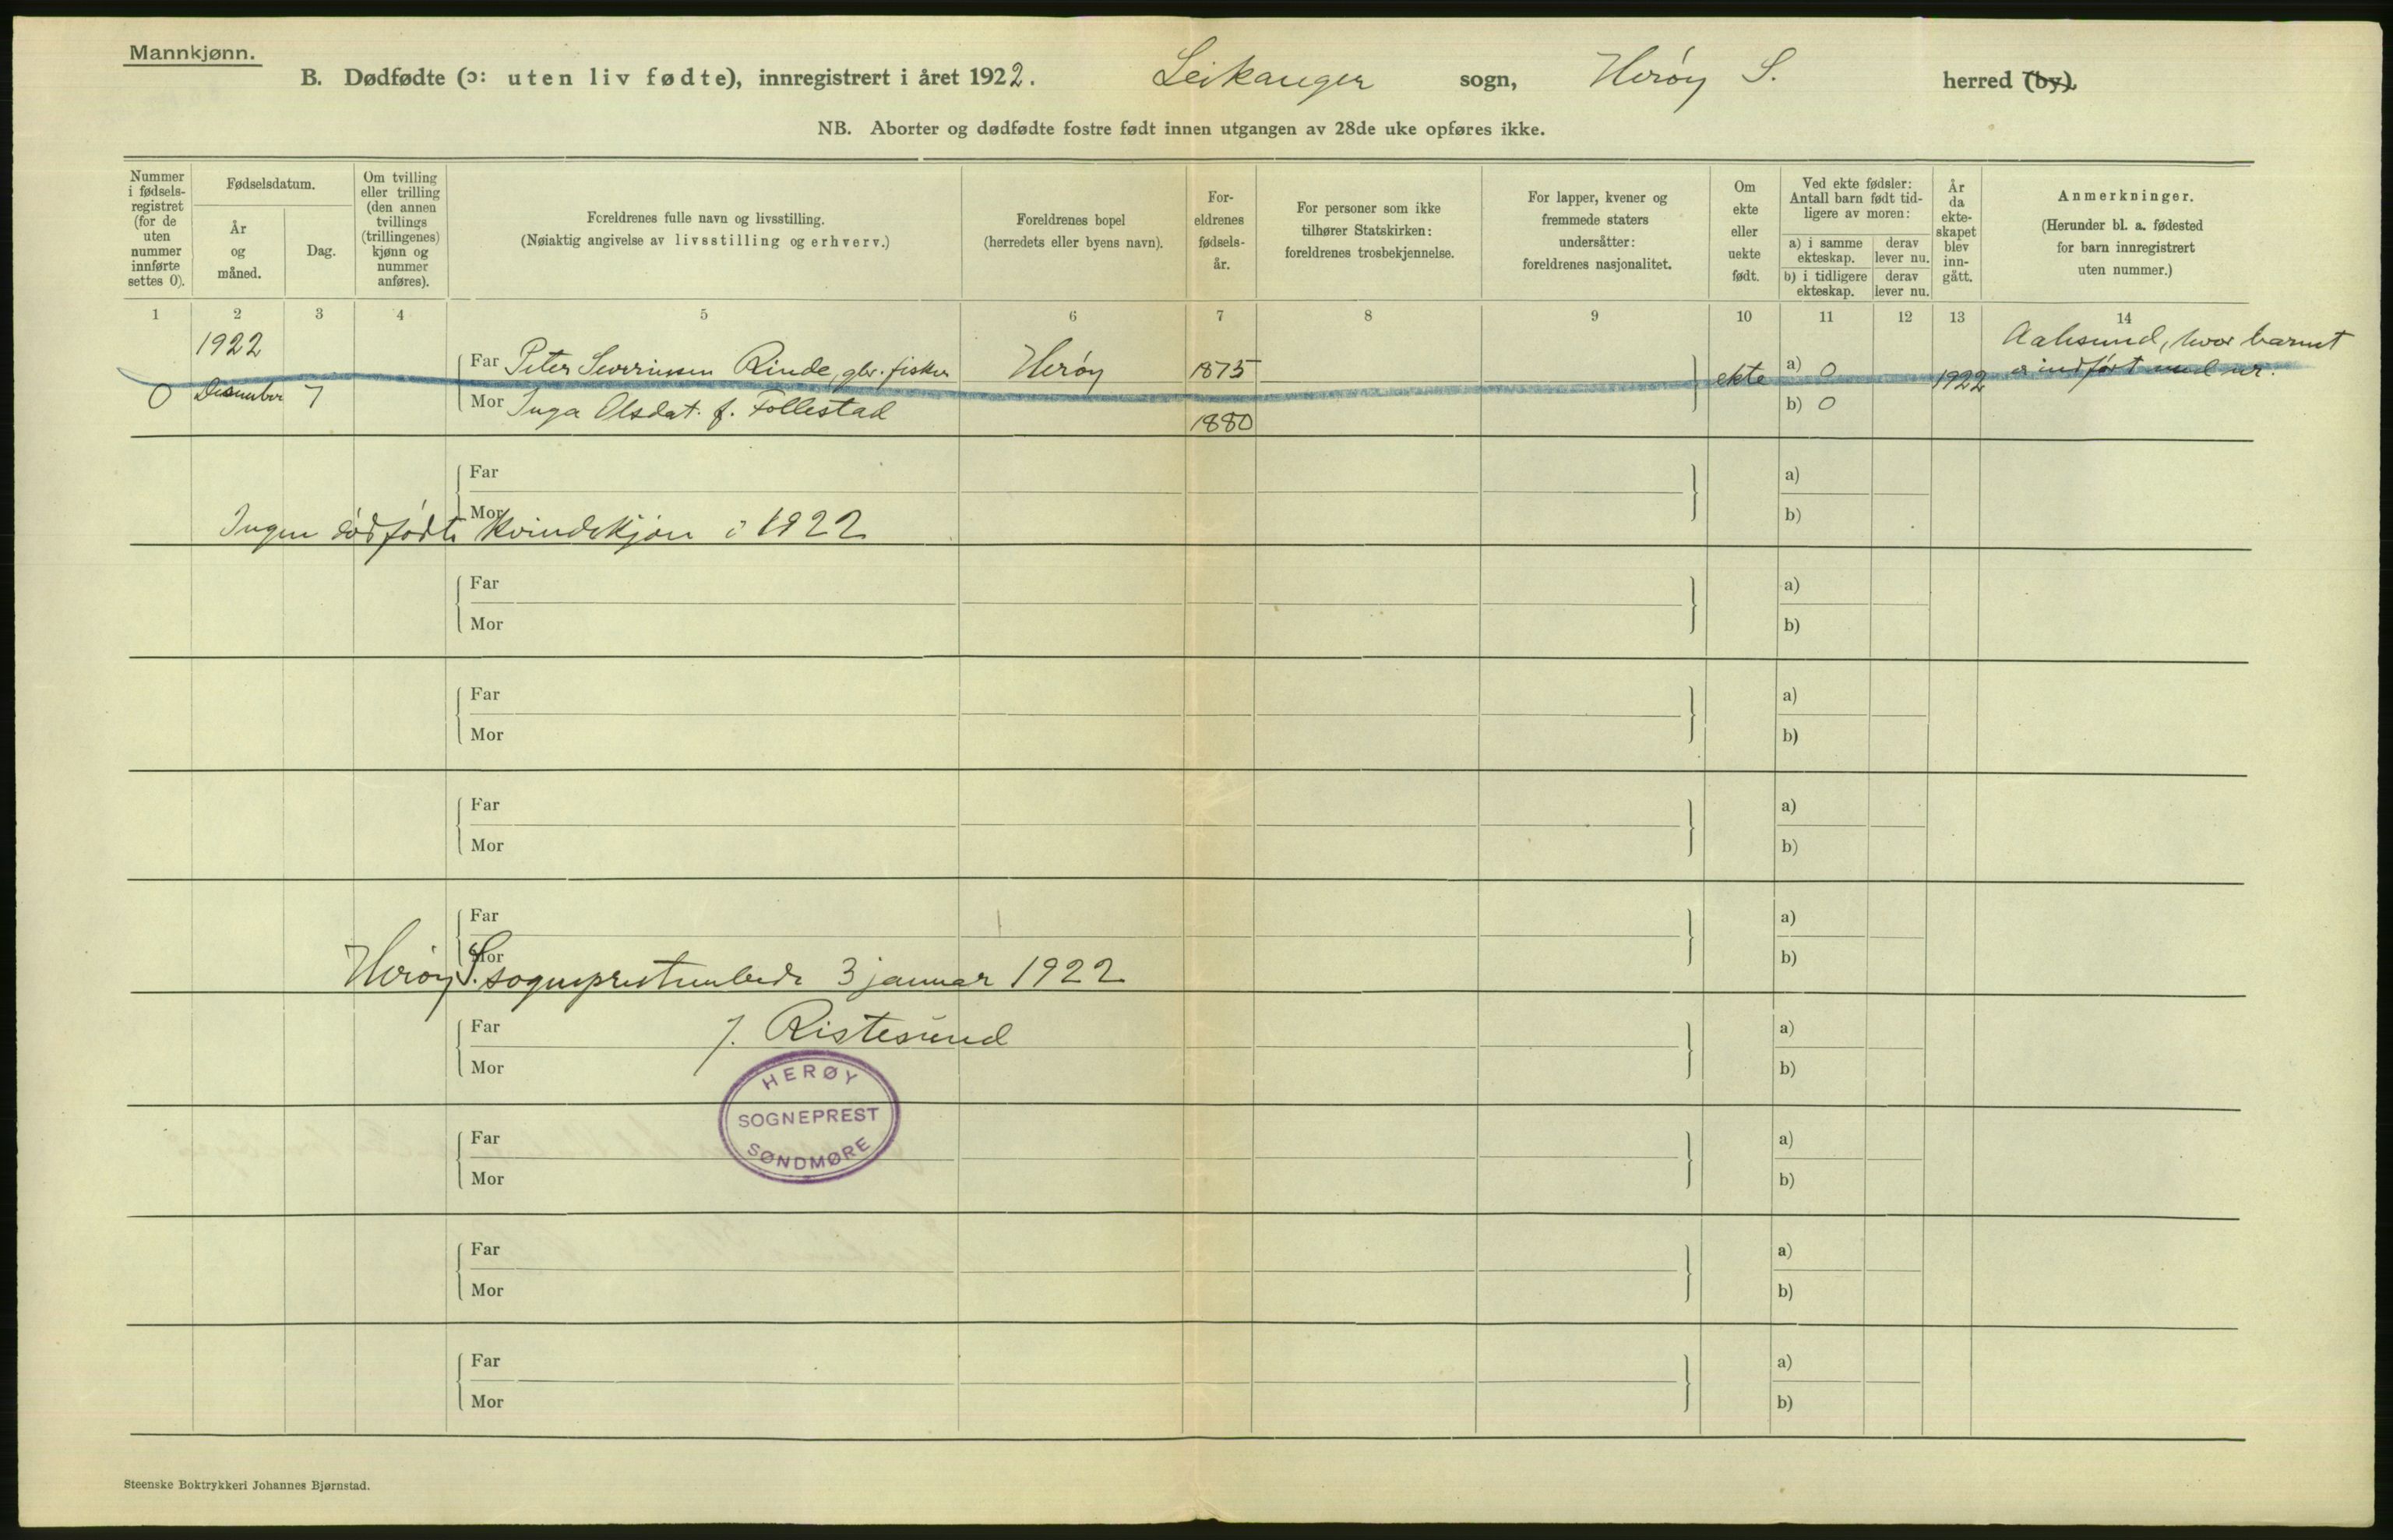 Mannkjønn.
B. Dødfødte (ɔ: uten liv fødte), innregistrert i året 1922. Leikanger sogn, Herøy S. herred (by).
NB. Aborter og dødfødte fostre født innen utgangen av 28de uke opføres ikke.
Nummer i fødsels-registret (for de uten nummer innførte settes 0).
Fødselsdatum.
År og måned.
Dag.
Om tvilling eller trilling (den annen tvillings (trillingenes) kjønn og nummer anføres).
Foreldrenes fulle navn og livsstilling.
(Nøiaktig angivelse av livsstilling og erhverv.)
Foreldrenes bopel
(herredets eller byens navn).
For-eldrenes fødsels-år.
For personer som ikke tilhører Statskirken: foreldrenes trosbekjennelse.
For lapper, kvener og fremmede staters undersåtter: foreldrenes nasjonalitet.
Om ekte eller uekte født.
Ved ekte fødsler: Antall barn født tid-ligere av moren:
a) i samme ekteskap.
derav lever nu.
b) i tidligere ekteskap.
derav lever nu.
År da ekte-skapet blev inn-gått.
Anmerkninger.
(Herunder bl. a. fødested for barn innregistrert uten nummer.)
1 2 3 4 5 6 7 8 9 10 11 12 13 14
1922
Aalesund, hvor barnet
Far Peter Severinsen Rinde, gbr. fisker Herøy 1875 ekte a) 0 1922 er indført med nr.
0 Desember 7 Mor Inga Olsdat. f. Follestad 1880 b) 0
Far a)
Mor b)
Ingen dødfødte kvindekjøn i 1922
Far a)
Mor b)
Far a)
Mor b)
Far a)
Mor b)
Far a)
Mor b)
Herøy S. sogneprestembede 3 januar 1922
J. Ristesund
Far a)
Mor b)
HERØY
SOGNEPREST
SØNDMØRE
Far a)
Mor b)
Far a)
Mor b)
Far a)
Mor b)
Steenske Boktrykkeri Johannes Bjørnstad.